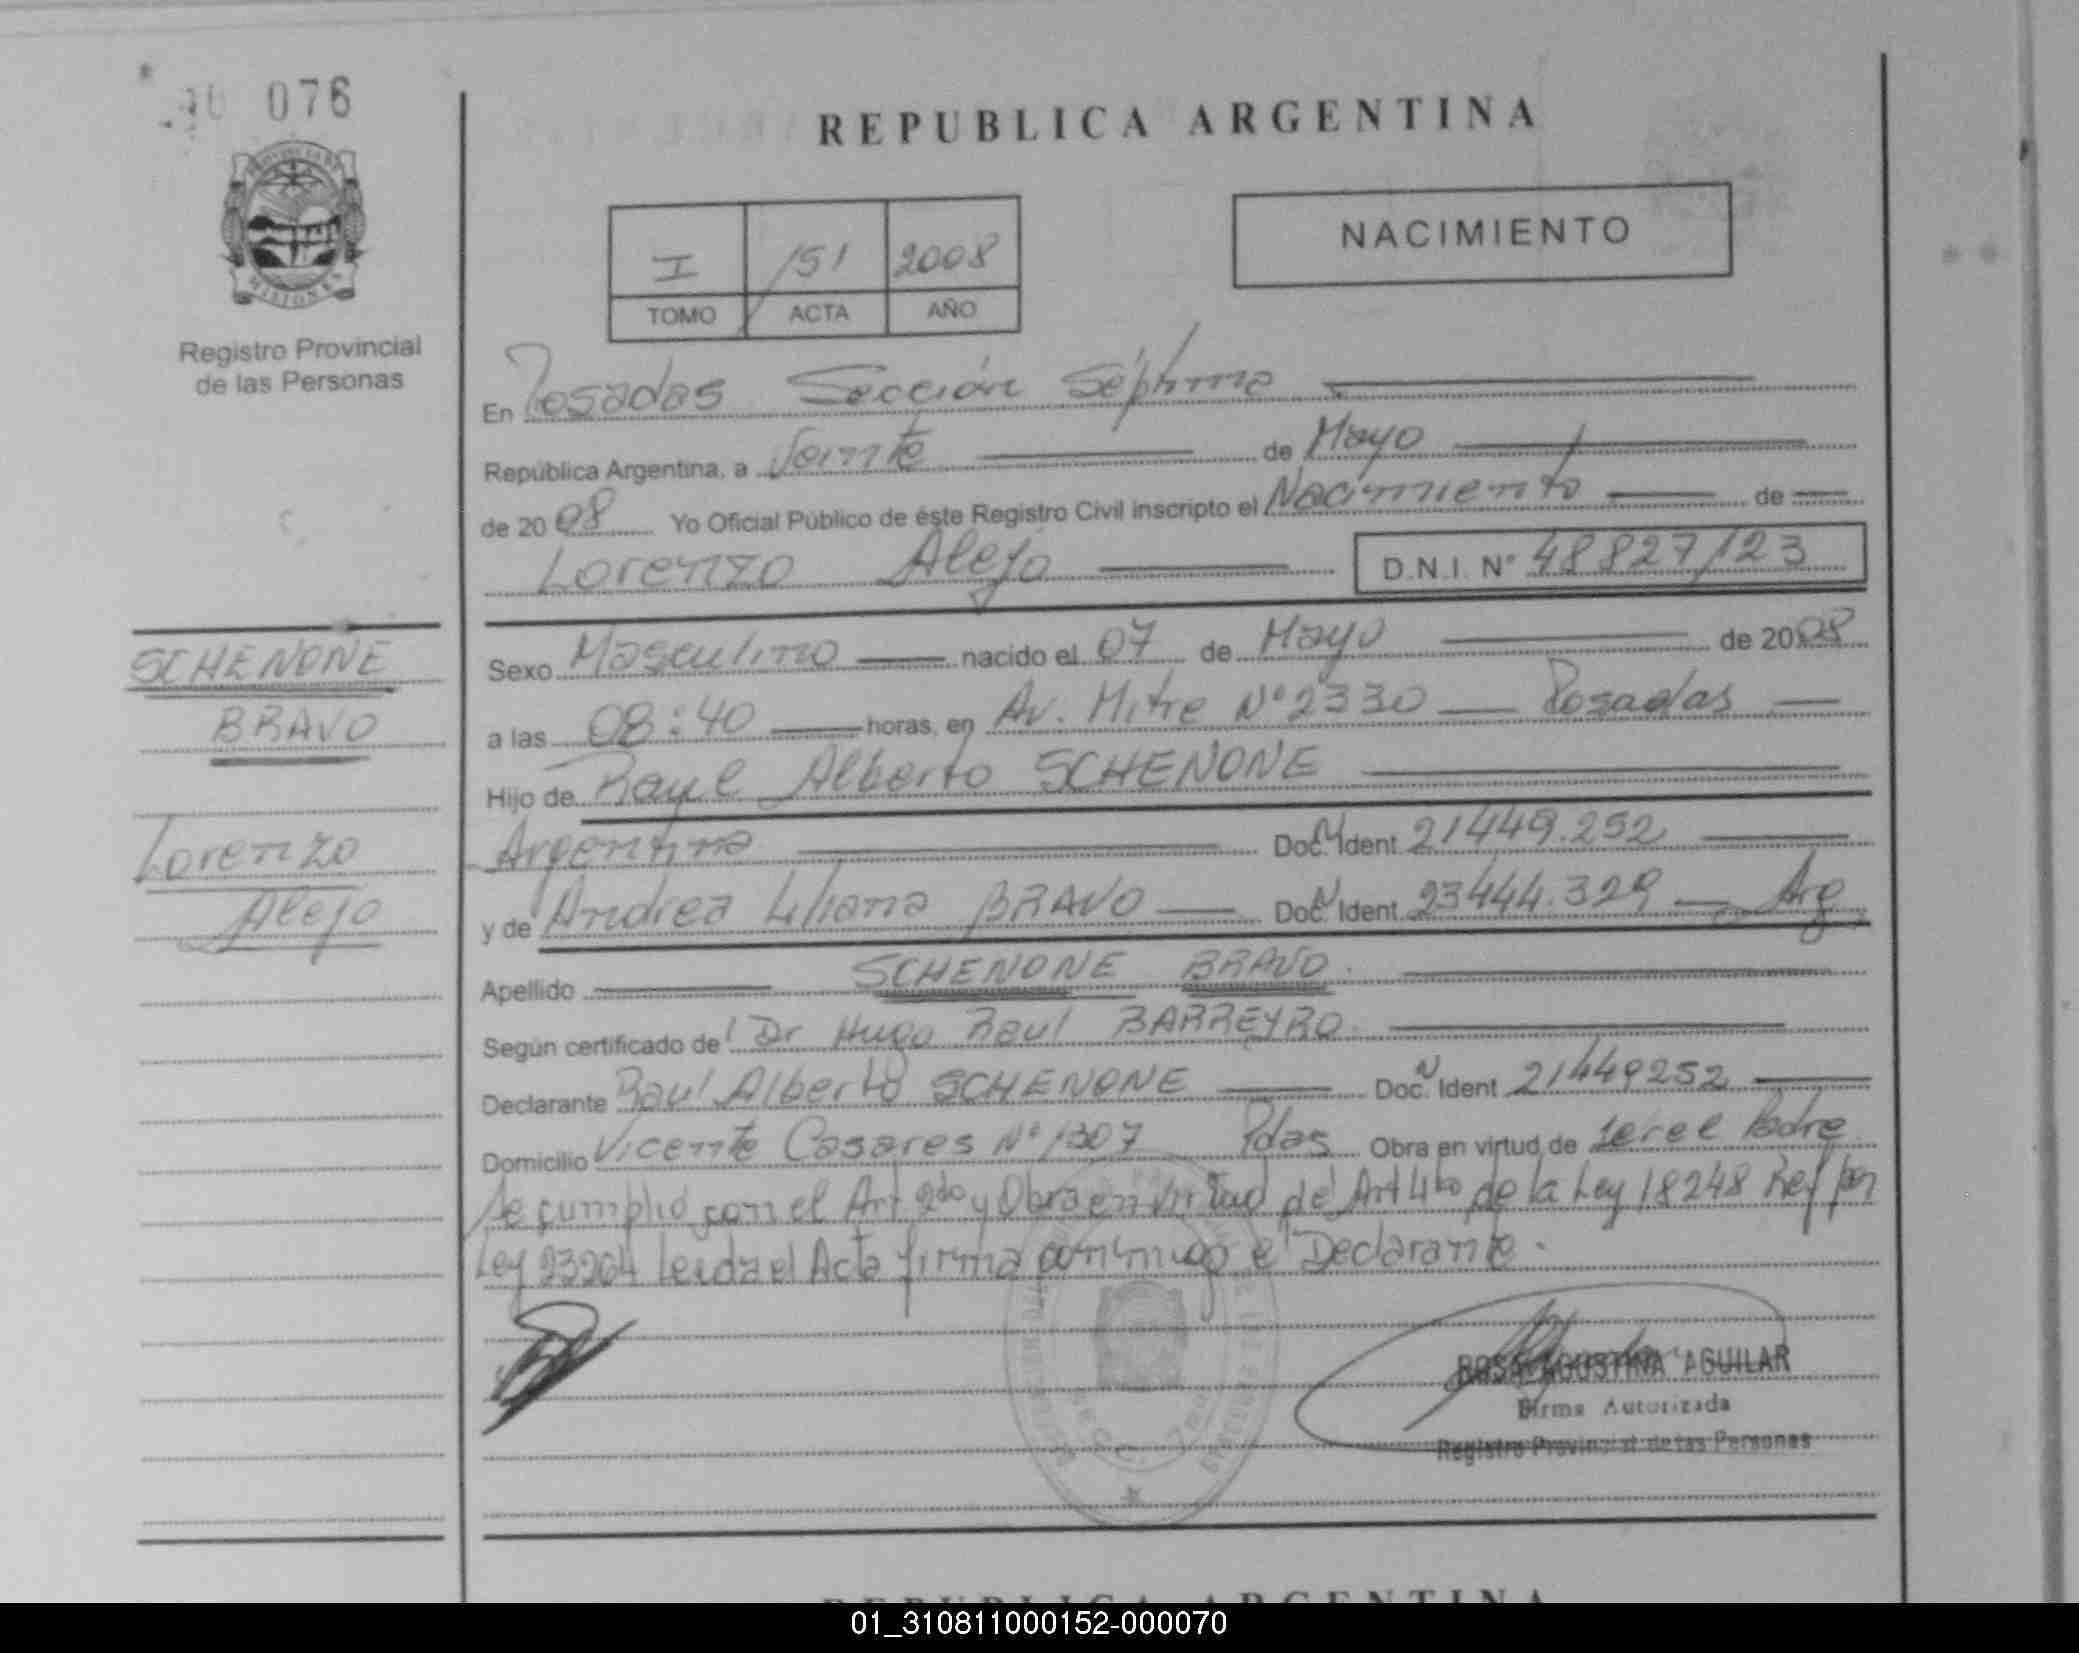 076
PROVINCIA DE
MISIONES
Registro Provincial
de las Personas
REPUBLICA ARGENTINA
I 151 2008
TOMO ACTA AÑO
NACIMIENTO
En Posadas Sección Séptima
República Argentina, a Veinte de Mayo
de 2008 Yo Oficial Público de éste Registro Civil inscripto el Nacimiento de
Lorenzo Alejo D.N.I. N° 48827123
SCHENONE
BRAVO
Lorenzo
Alejo
Sexo Masculino nacido el 07 de Mayo de 2008
a las 08:40 horas, en Av. Mitre N° 2330 Posadas
Hijo de Raul Alberto SCHENONE
Argentina Doc. N Ident 21449.252
y de Andrea Liliana BRAVO Doc. N Ident 23444.329 Arg
Apellido SCHENONE BRAVO.
Según certificado del Dr Hugo Raul BARREYRO.
Declarante Raul Alberto SCHENONE Doc. N Ident 21449252
Domicilio Vicente Casares N° 1307 Pdas Obra en virtud de ser el Padre
Se cumplió con el Art 2do y Obra en virtud del Art 4to de la Ley 18248 Ref por
Ley 23264 leida el Acta firma conmigo el Declarante.
ROSA AGUSTINA AGUILAR
Firma Autorizada
Registro Provincial de las Personas
REPUBLICA ARGENTINA
01_310811000152-000070